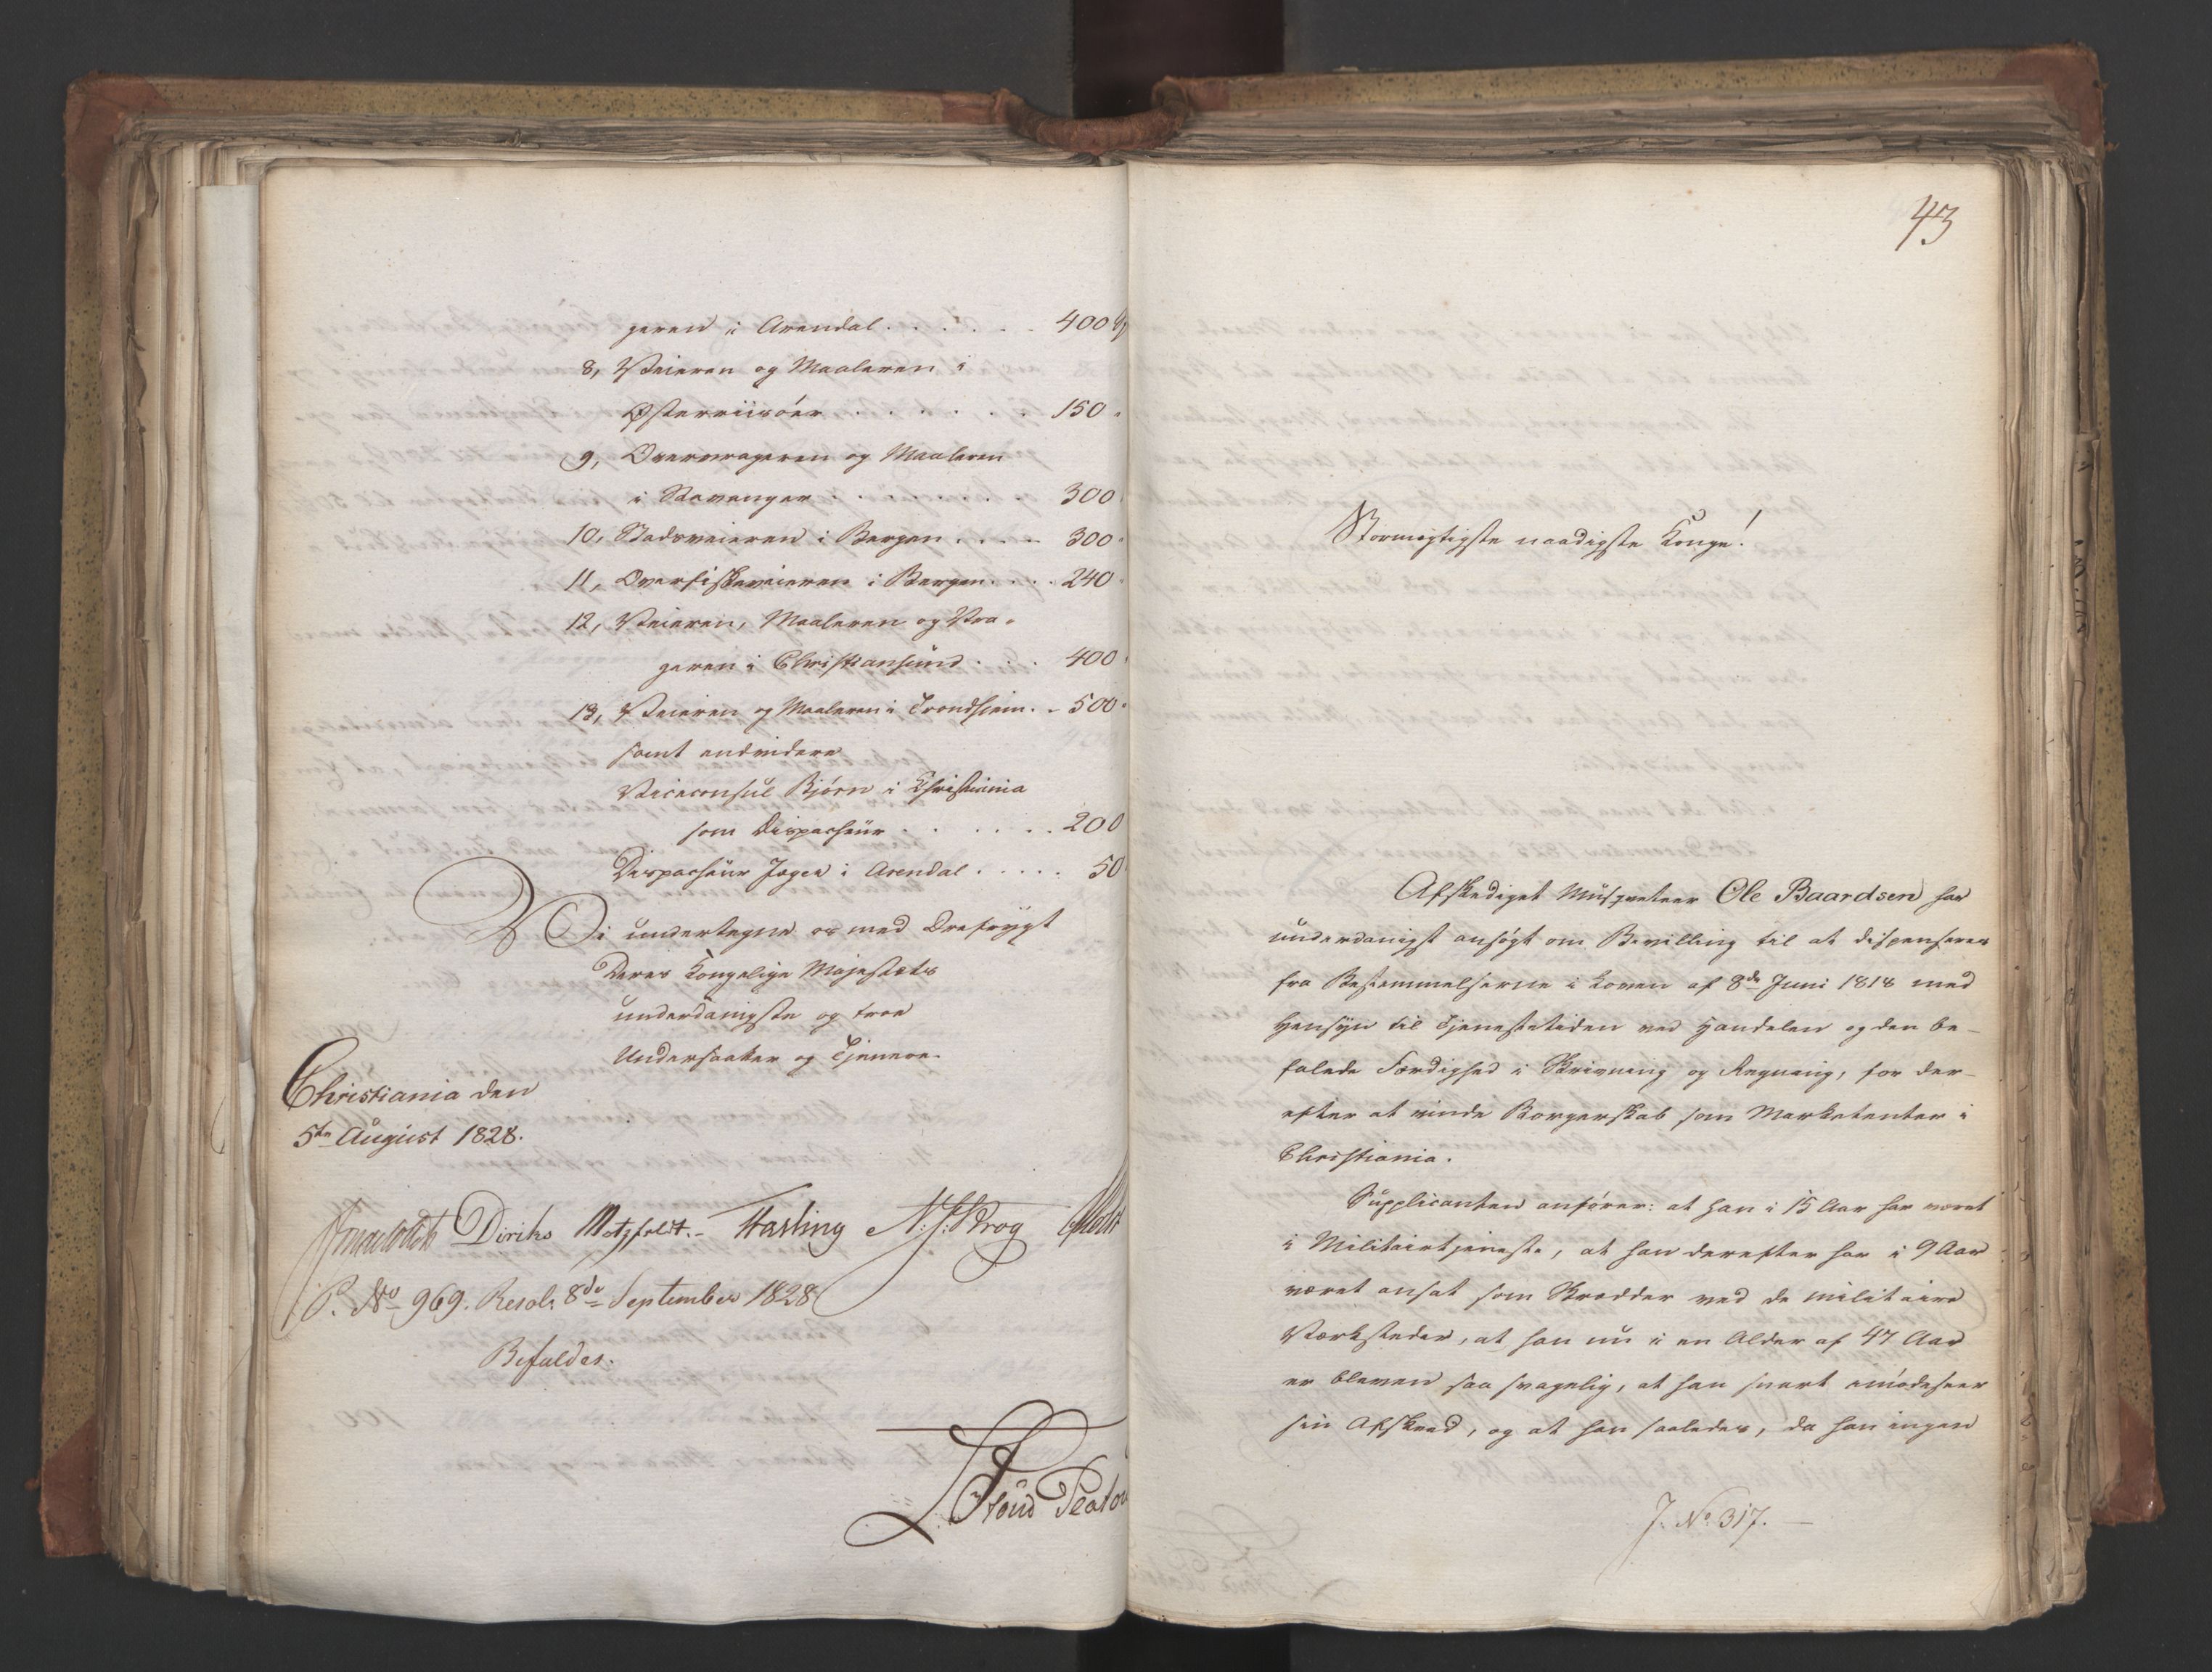 geren i Arendal . . . . . . 400
8, Veieren og Maaleren i
Østerriisöer . . . . . . 150 "
9, Overvrageren og Maaleren
i Stavanger . . . . . . . 300
10, Stadsveieren i Bergen . . . . 300 "
11, Overfiskeveieren i Bergen . . . . 240 "
12, Veieren, Maaleren og Vra-
geren i Christiansund . . . 400
13, Veieren og Maaleren i Trondhiem . . 500 "
samt endvidere
Viceconsul Björn i Christiania
som Dispacheur . . . . . . 200
Dispacheur Jæger i Arendal . . . . . 50
Vi undertegne os med Ærefrygt
Deres Kongelige Majestæts
underdanigste og troe
Undersaatter og Tjenere.
Christiania den
5te August 1828.
Diriks Motzfeldt. Fasting N: J: Krog
P. No 969. Resol. 8de September 1828
Bifaldes.
43
Stormægtigste naadigste Konge!
Afskediget Musqueteer Ole Baardsen har
underdanigst ansögt om Bevilling til at dispenseres
fra Bestemmelserne i Loven af 8de Juni 1818 med
Hensyn til Tjenestetiden ved Handelen og den be-
falede Færdighed i Skrivning og Regning, for der-
efter at vinde Borgerskab som Marketenter i
Christiania.
Supplicanten anförer: at han i 15 Aar har været
i Militairtjeneste, at han derefter har i 9 Aar
været ansat som Skrædder ved de militaire
Værksteder, at han nu i en Alder af 47 Aar
er bleven saa svagelig, at han snart imödeseer
sin Afskeed, og at han saaledes, da han ingen
J. No 317.